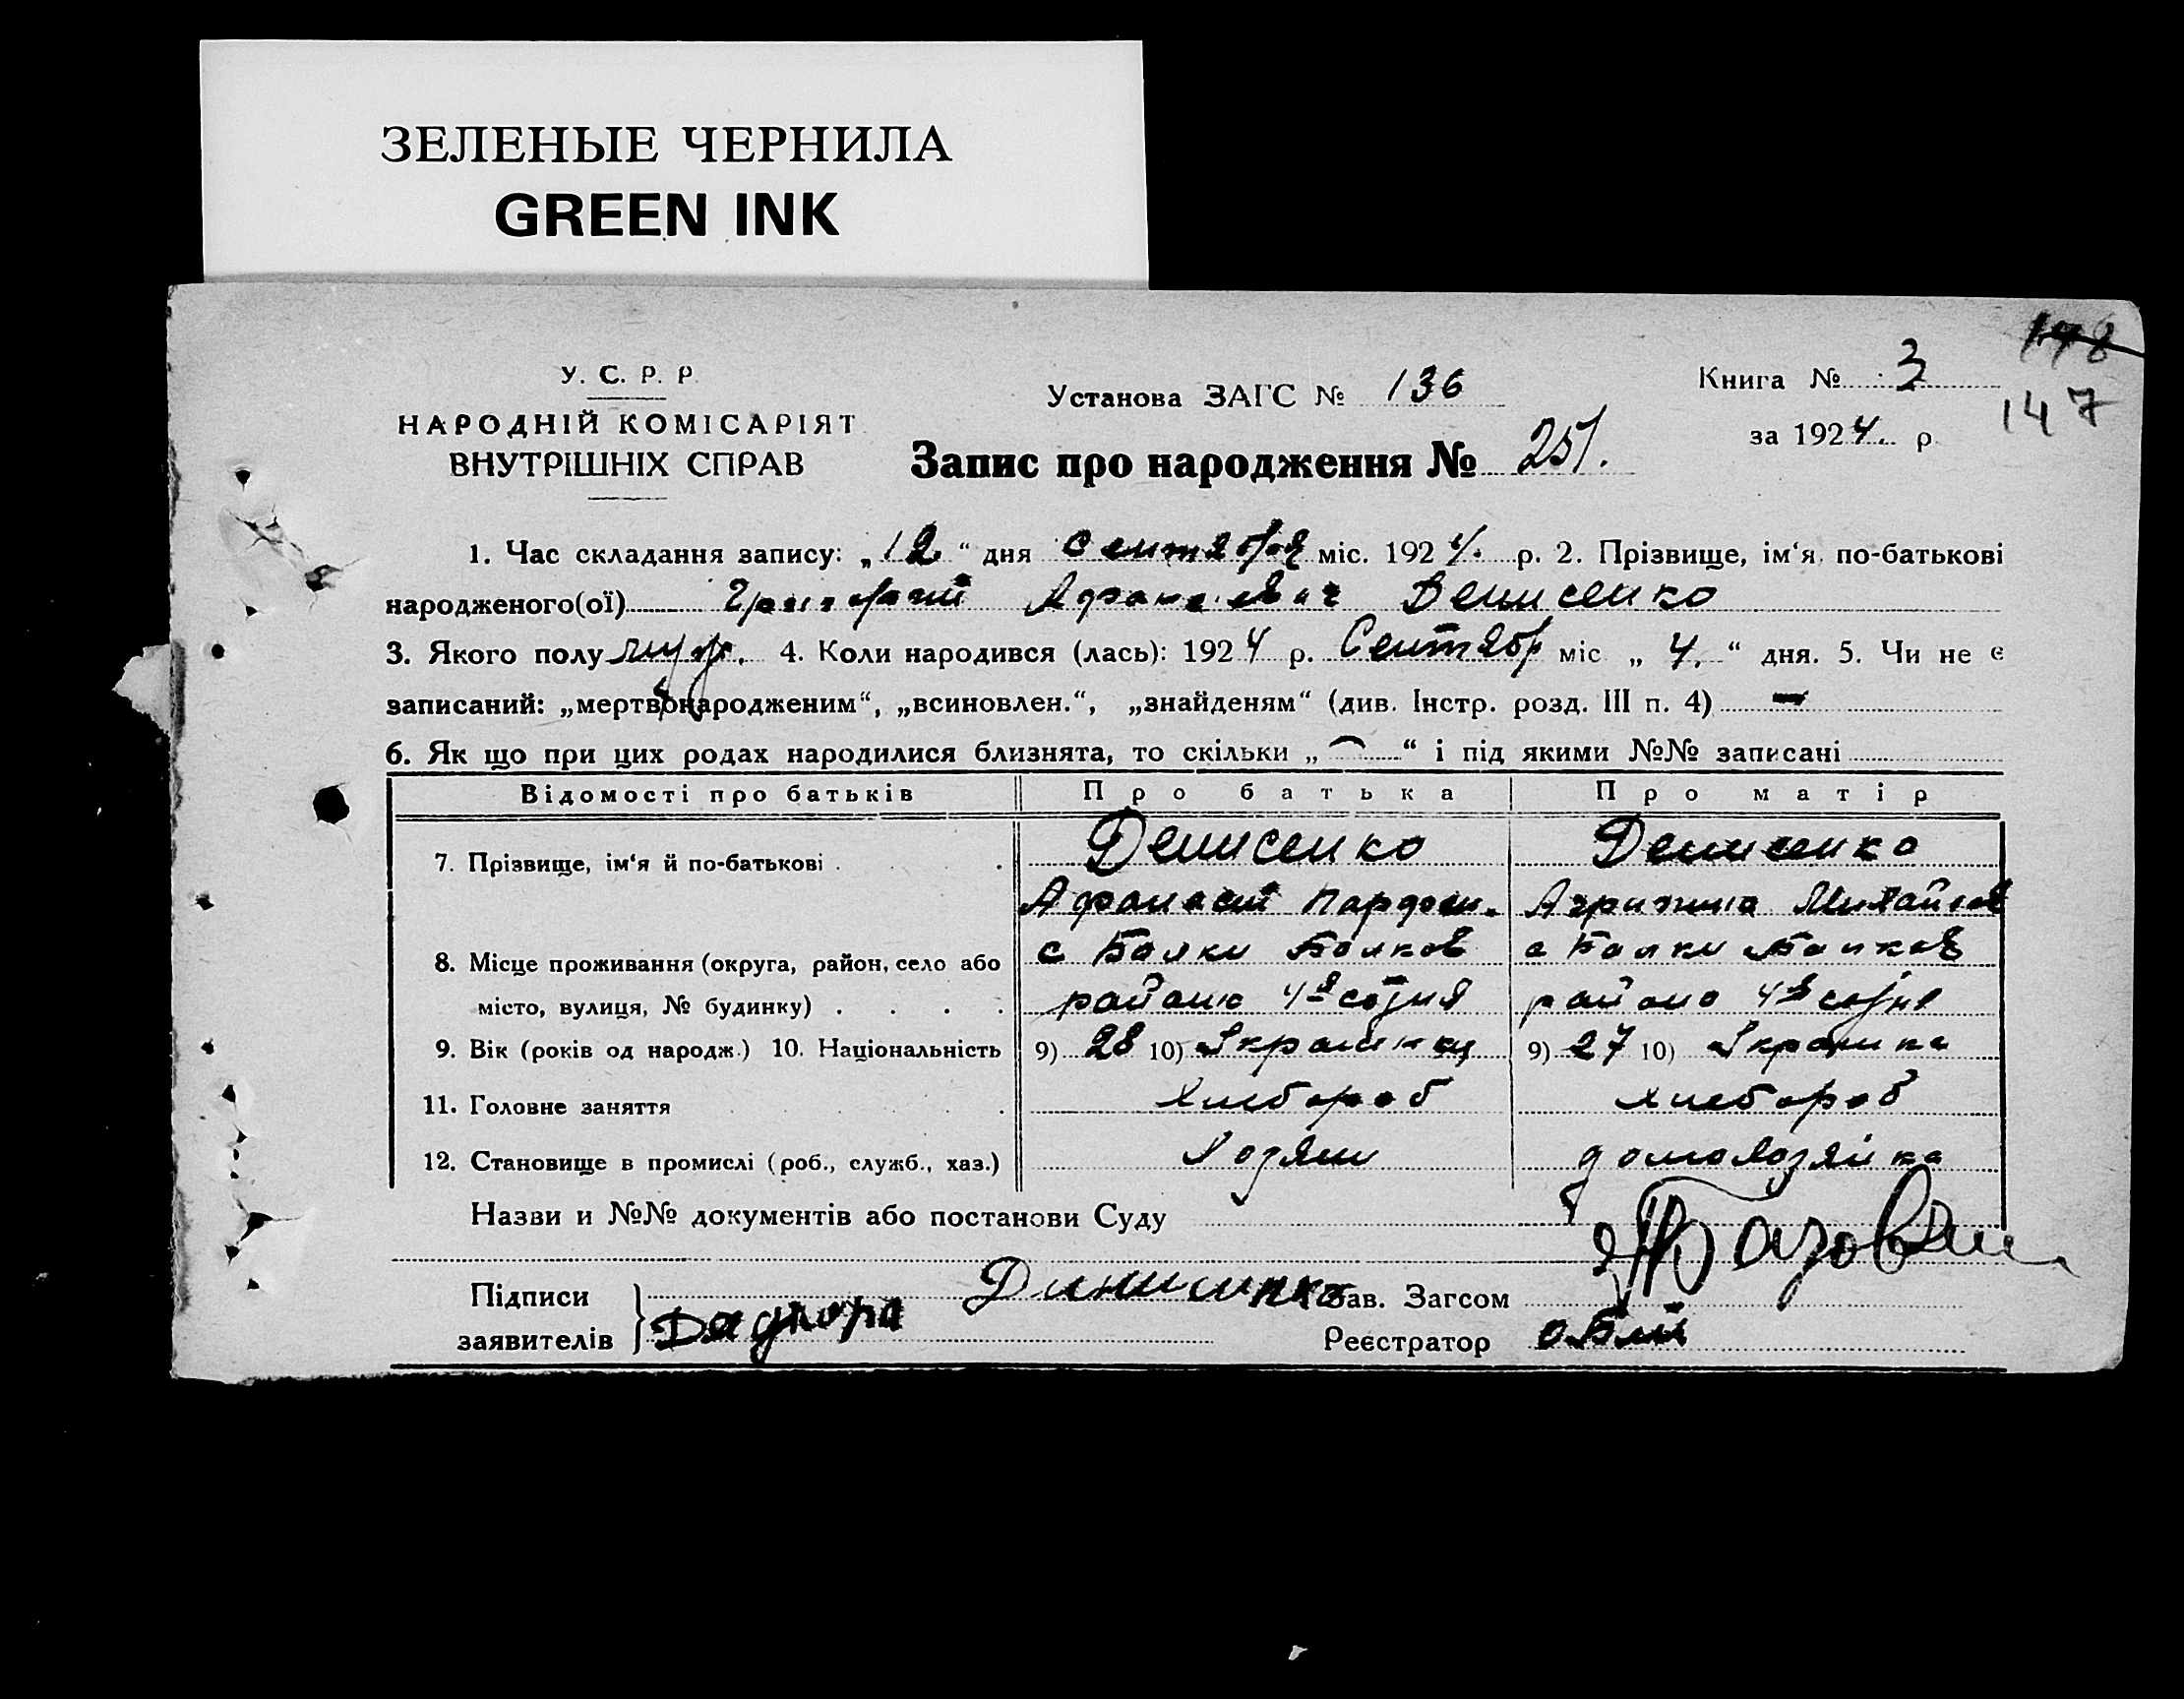 ЗЕЛЕНЫЕ ЧЕРНИЛА
GREEN INK
148
147
У. С. Р. Р.
НАРОДНІЙ КОМІСАРІЯТ
ВНУТРІШНІХ СПРАВ
Установа ЗАГС № 136
Книга № 3
за 1924. р.
Запис про народження № 251.
1. Час складання запису: „12“ дня Сентября міс. 1924. р. 2. Прізвище, ім‘я, по-батькові
народженого(ої) Григорий Афанасиевич Денисенко
3. Якого полу муж. 4. Коли народився (лась): 1924 р. Сентябр міс „4.“ дня. 5. Чи не є
записаний: „мертвонародженим“, „всиновлен.“, „знайденям“ (див. Інстр. розд. III п. 4) —
6. Як що при цих родах народилися близнята, то скільки „ — “ і під якими №№ записані
Відомості про батьків Про батька Про матір
7. Прізвище, ім‘я й по-батькові . . . . Денисенко Денисенко
Афанасий Парфен. Агрипина Михайлов
8. Місце проживання (округа, район, село або с Балки Балков с Балки Балков
місто, вулиця, № будинку) . . . . району 4я сотня района 4я сотня
9. Вік (років од народж.) 10. Національність 9) 28 10) Украинец 9) 27 10) Украинка
11. Головне заняття . . . . Хлебороб хлебороб
12. Становище в промислі (роб., служб., хаз.) Хозяин домохозяйка
Назви и №№ документів або постанови Суду
Підписи
заявителів
Зав. Загсом
Реєстратор